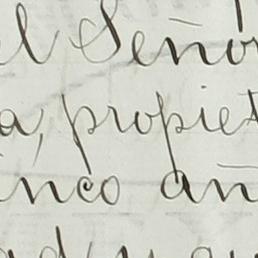 el Señor
a, propiet
inco añ